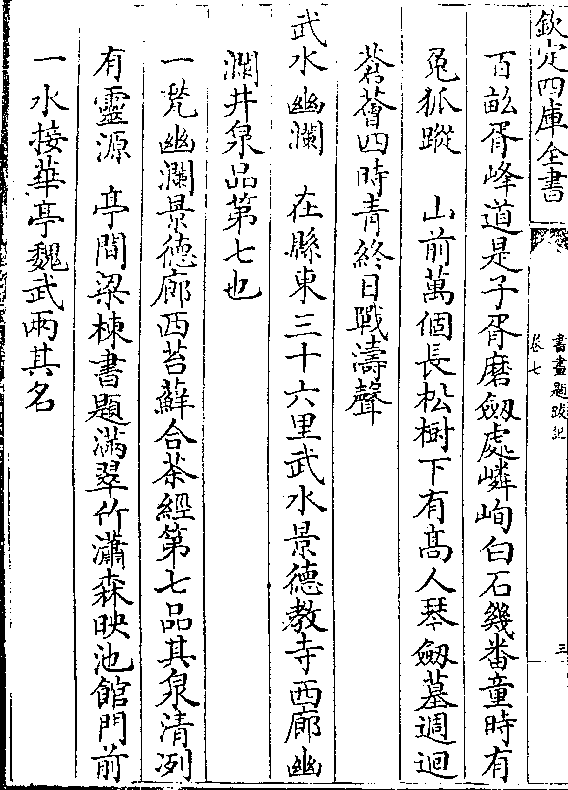 欽定四庫全書
書畫題跋記
卷七
三
百畝胥峰道是子胥磨劔處嶙峋白石幾番童時有
兔狐蹤　山前萬個長松樹下有髙人琴劔墓週迴
蒼薈四時青終日戰濤聲
武水幽瀾　在縣東三十六里武水景德教寺西廊幽
瀾井泉品第七也
一甃幽瀾景德廊西苔蘚合茶經第七品其泉清冽
有靈源　亭間梁棟書題滿翠竹瀟森映池館門前
一水接華亭魏武兩其名